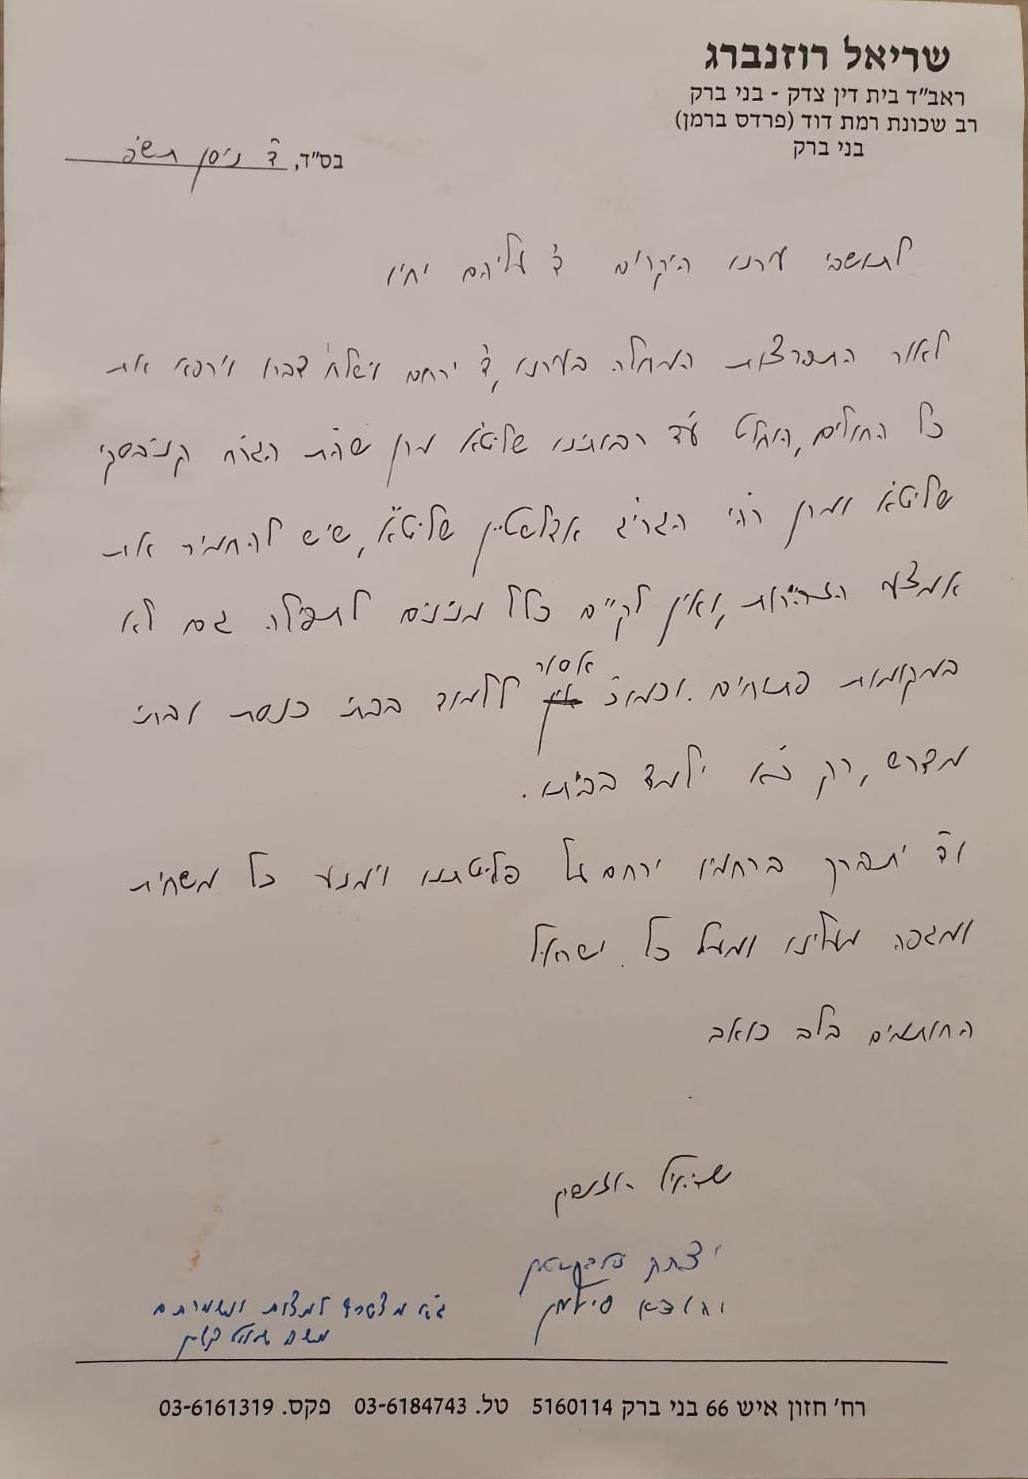 שריאל רוזנברג
ראב"ד בית דין צדק - בני ברק
רב שכונת רמת דוד (פרדס ברמן)
בני ברק
בס"ד, ד' ניסן תש"פ
לתושבי ערנו היקרים ד' עליהם יחיו
לאור התפרצות המחלה בערנו, ד' ירחם וישלח דברו וירפא את
כל החולים, הוחלט ע"ד רבותינו שליט"א מרן שה"ת הגר"ח קניבסקי
שליט"א ומרן רה"י הגר"ג אדלשטיין שליט"א, שיש להחמיר את
אמצעי הזהירות, ואין לקיים כלל מנינים לתפילה גם לא
במקומות פתוחים. וכמו"כ אסור ללמוד בבתי כנסת ובתי
מדרש, רק כ"א ילמד בביתו.
וד' יתברך ברחמיו ירחם על פליטתנו וימנע כל משחית
ומגפה מעלינו ומעל כל ישראל
החותמים בלב כואב
שריאל רוזנברג
יצחק זילברשטיין
יהודא סילמן
גם אני מצטרף למצות ונשמרתם
רח' חזון איש 66 בני ברק 5160114 טל. 03-6184743 פקס. 03-6161319